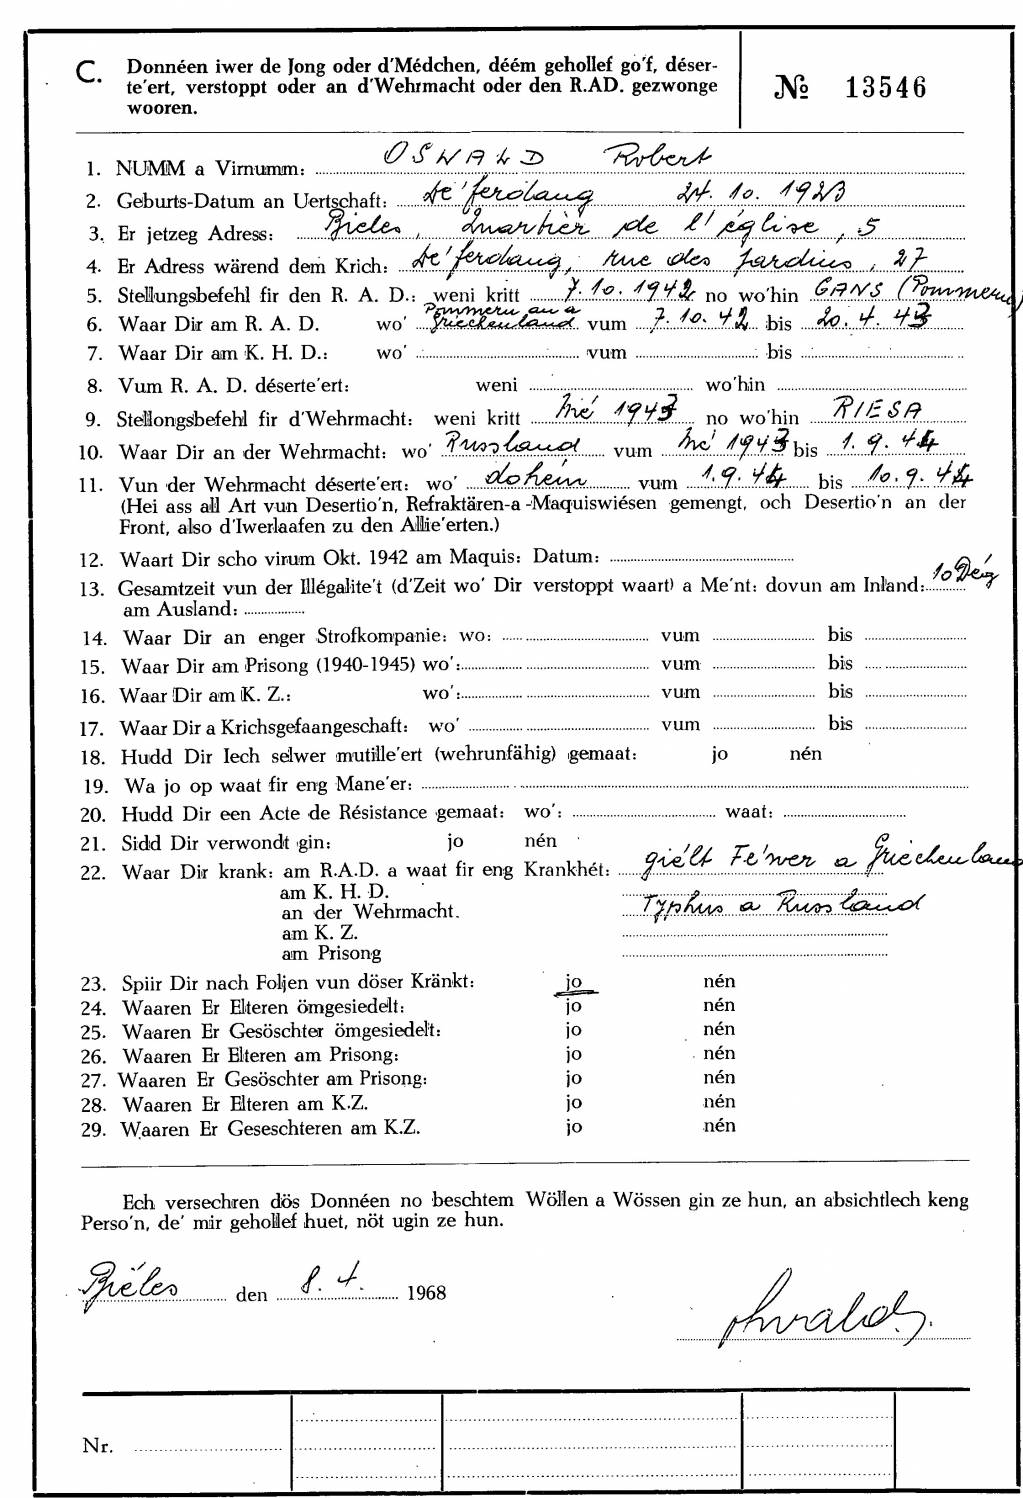 C. Donnéen iwer de Jong oder d'Médchen, déém gehollef go'f, déser-
te'ert, verstoppt oder an d'Wehrmacht oder den R.AD. gezwonge
wooren.
№ 13546
1. NUMM a Virnumm: OSWALD Robert
2. Geburts-Datum an Uertschaft: Dé'ferdang 24. 10. 1923
3. Er jetzeg Adress: Bieles, Quartier de l'église, 5
4. Er Adress wärend dem Krich: Dé'ferdang, rue des Jardins, 27
5. Stellungsbefehl fir den R. A. D.: weni kritt 7.10.1942 no wo'hin GANS (Pommern)
6. Waar Dir am R. A. D. wo' Pommern an a Griechenland vum 7.10.42 bis 20.4.43
7. Waar Dir am K. H. D.: wo' vum bis
8. Vum R. A. D. déserte'ert: weni wo'hin
9. Stellongsbefehl fir d'Wehrmacht: weni kritt Mé 1943 no wo'hin RIESA
10. Waar Dir an der Wehrmacht: wo' Russland vum Mé 1943 bis 1. 9. 44
11. Vun der Wehrmacht déserte'ert: wo' dohém vum 1.9.44 bis 10.9.44
(Hei ass all Art vun Desertio'n, Refraktären-a-Maquiswiésen gemengt, och Desertio'n an der
Front, also d'Iwerlaafen zu den Allie'erten.)
12. Waart Dir scho virum Okt. 1942 am Maquis: Datum:
13. Gesamtzeit vun der Illégalite't (d'Zeit wo' Dir verstoppt waart) a Me'nt: dovun am Inland: 10 Dég
am Ausland:
14. Waar Dir an enger Strofkompanie: wo: vum bis
15. Waar Dir am Prisong (1940-1945) wo': vum bis
16. Waar Dir am K. Z.: wo': vum bis
17. Waar Dir a Krichsgefaangeschaft: wo' vum bis
18. Hudd Dir Iech selwer mutille'ert (wehrunfähig) gemaat: jo nén
19. Wa jo op waat fir eng Mane'er:
20. Hudd Dir een Acte de Résistance gemaat: wo': waat:
21. Sidd Dir verwondt gin: jo nén
22. Waar Dir krank: am R.A.D. a waat fir eng Krankhét: giélt Fé'wer a Griechenland
am K. H. D.
an der Wehrmacht. Typhus a Russland
am K. Z.
am Prisong
23. Spiir Dir nach Foljen vun döser Kränkt: jo nén
24. Waaren Er Elteren ömgesiedelt: jo nén
25. Waaren Er Gesöschter ömgesiedelt: jo nén
26. Waaren Er Elteren am Prisong: jo nén
27. Waaren Er Gesöschter am Prisong: jo nén
28. Waaren Er Elteren am K.Z. jo nén
29. Waaren Er Geseschteren am K.Z. jo nén
Ech versechren dös Donnéen no beschtem Wöllen a Wössen gin ze hun, an absichtlech keng
Perso'n, de' mir gehollef huet, nöt ugin ze hun.
Biéles den 8. 4. 1968
Oswald
Nr.